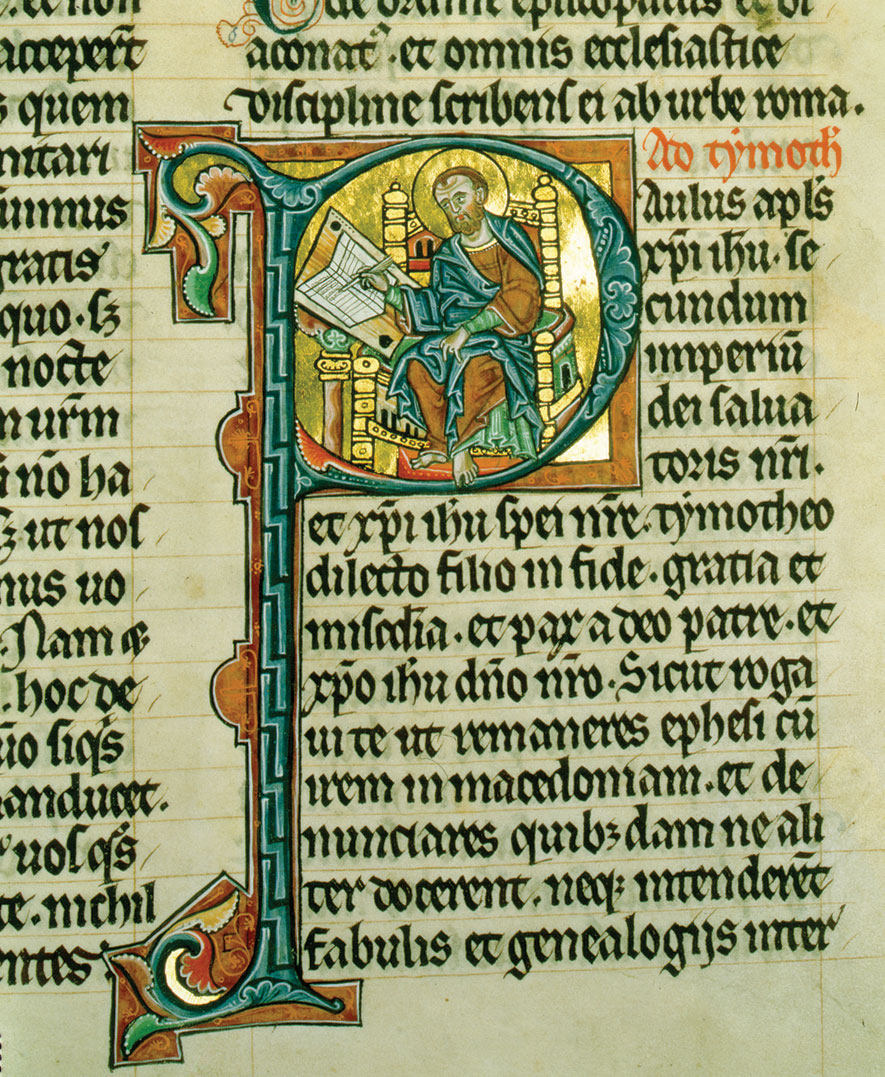 et non
accepert̄
quem
nitari
uimus
gratis
quo·sꝫ
nocte
urm̄
nō ha
sꝫ ut nos
mus uo
Nam
.hoc de
siq̄s
anducet.
uos q̄s
te.nichil
entes
de ordine episcopatus et di
aconatꝰ.et omnis ecclesiastice
discipline scribens ei ab urbe roma.
Ad tẏmoth̄
Paulus apl̄s
xp̄i ih̄u.se
cundum
imperiū
dei salua
toris nr̄i.
et xp̄i ih̄u spei nr̄e.tẏmotheo
dilecto filio in fide.gratia et
misedīa.et pax a deo patre.et
xp̄o ih̄u dn̄o nr̄o.Sicut roga
ui te ut remaneres ephesi cū
irem in macedoniam.et de
nunciares quibꝫdam ne ali
ter docerent.neqꝫ intenderēt
fabulis et genealogijs inter